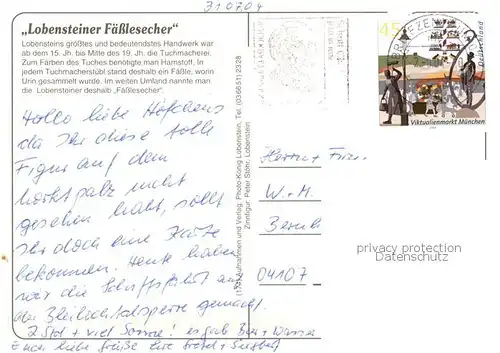 310704
„Lobensteiner Fäßlesecher“
Lobensteins größtes und bedeutendstes Handwerk war
ab dem 15. Jh. bis Mitte des 19. Jh. die Tuchmacherei.
Zum Färben des Tuches benötigte man Harnstoff. In
jedem Tuchmacherstübl stand deshalb ein Fäßle, worin
Urin gesammelt wurde. Im weiten Umland nannte man
die Lobensteiner deshalb „Fäßlesecher“.
Hallo liebe
da Ihr diese tolle
Figur auf dem
Marktplatz nicht
gesehen habt, sollt
Ihr doch eine Karte
bekommen. Heute haben
wir die Schiffsfahrt auf
der Bleilochtalsperre gemacht.
2 Std + viel Sonne! es gab Bier + Wasser
Euch liebe Grüße Eure
(1174) Aufnahmen und Verlag: Photo-König Lobenstein, Tel. (036651) 2328
Zinnfigur: Peter Stöhr, Lobenstein
45
Deutschland
Viktualienmarkt München
Herrn + Frau
W. + M.
04107
privacy protection
Datenschutz